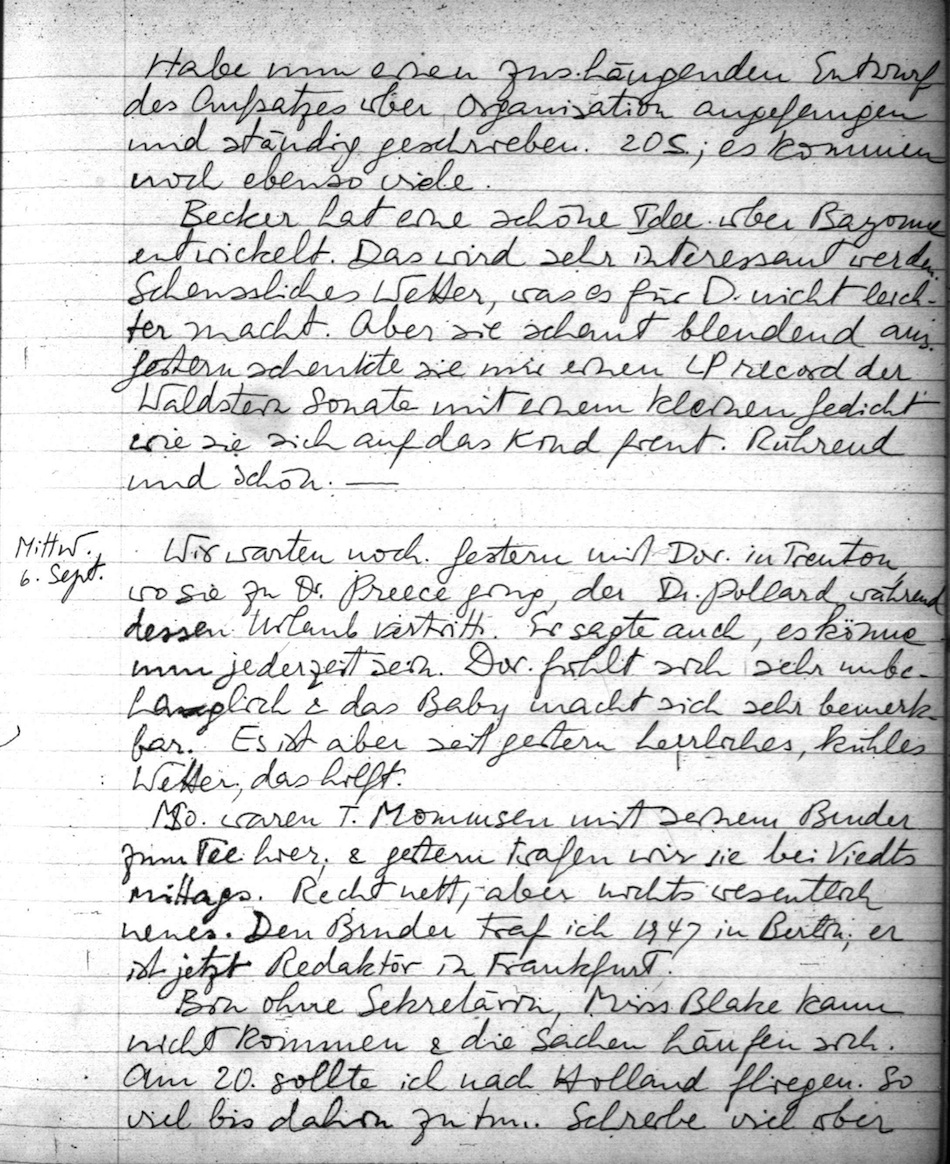 Habe nun einen zus.hängenden Entwurf
des Aufsatzes über Organisation angefangen
und ständig geschrieben. 20S.; es kommen
noch ebenso viele.
Becker hat eine schöne Idee über Bayonne
entwickelt. Das wird sehr interessant werden.
Scheussliches Wetter, was es für D. nicht leich-
ter macht. Aber sie schaut blendend aus.
Gestern schenkte sie mir einen LP record der
Waldstein Sonate mit einem kleinen Gedicht
wie sie sich auf das Kind freut. Rührend
und schön. —
Mittw.
6. Sept.
Wir warten noch. Gestern mit Dor. in Trenton,
wo sie zu Dr. Preece ging, der Dr. Pollard während
dessen Urlaub vertritt. Er sagte auch, es könne
nun jederzeit sein. Dor. fühlt sich sehr unbe-
haglich & das Baby macht sich sehr bemerk-
bar. Es ist aber seit gestern herrliches, kühles
Wetter, das hilft.
So. waren T. Mommsen mit seinem Bruder
zum Tee hier, & gestern trafen wir sie bei Viedts
mittags. Recht nett, aber nichts wesentlich
neues. Den Bruder traf ich 1947 in Berlin; er
ist jetzt Redaktör in Frankfurt.
Bin ohne Sekretärin, Miss Blake kann
nicht kommen & die Sachen häufen sich.
Am 20. sollte ich nach Holland fliegen. So
viel bis dahin zu tun. Schreibe viel über